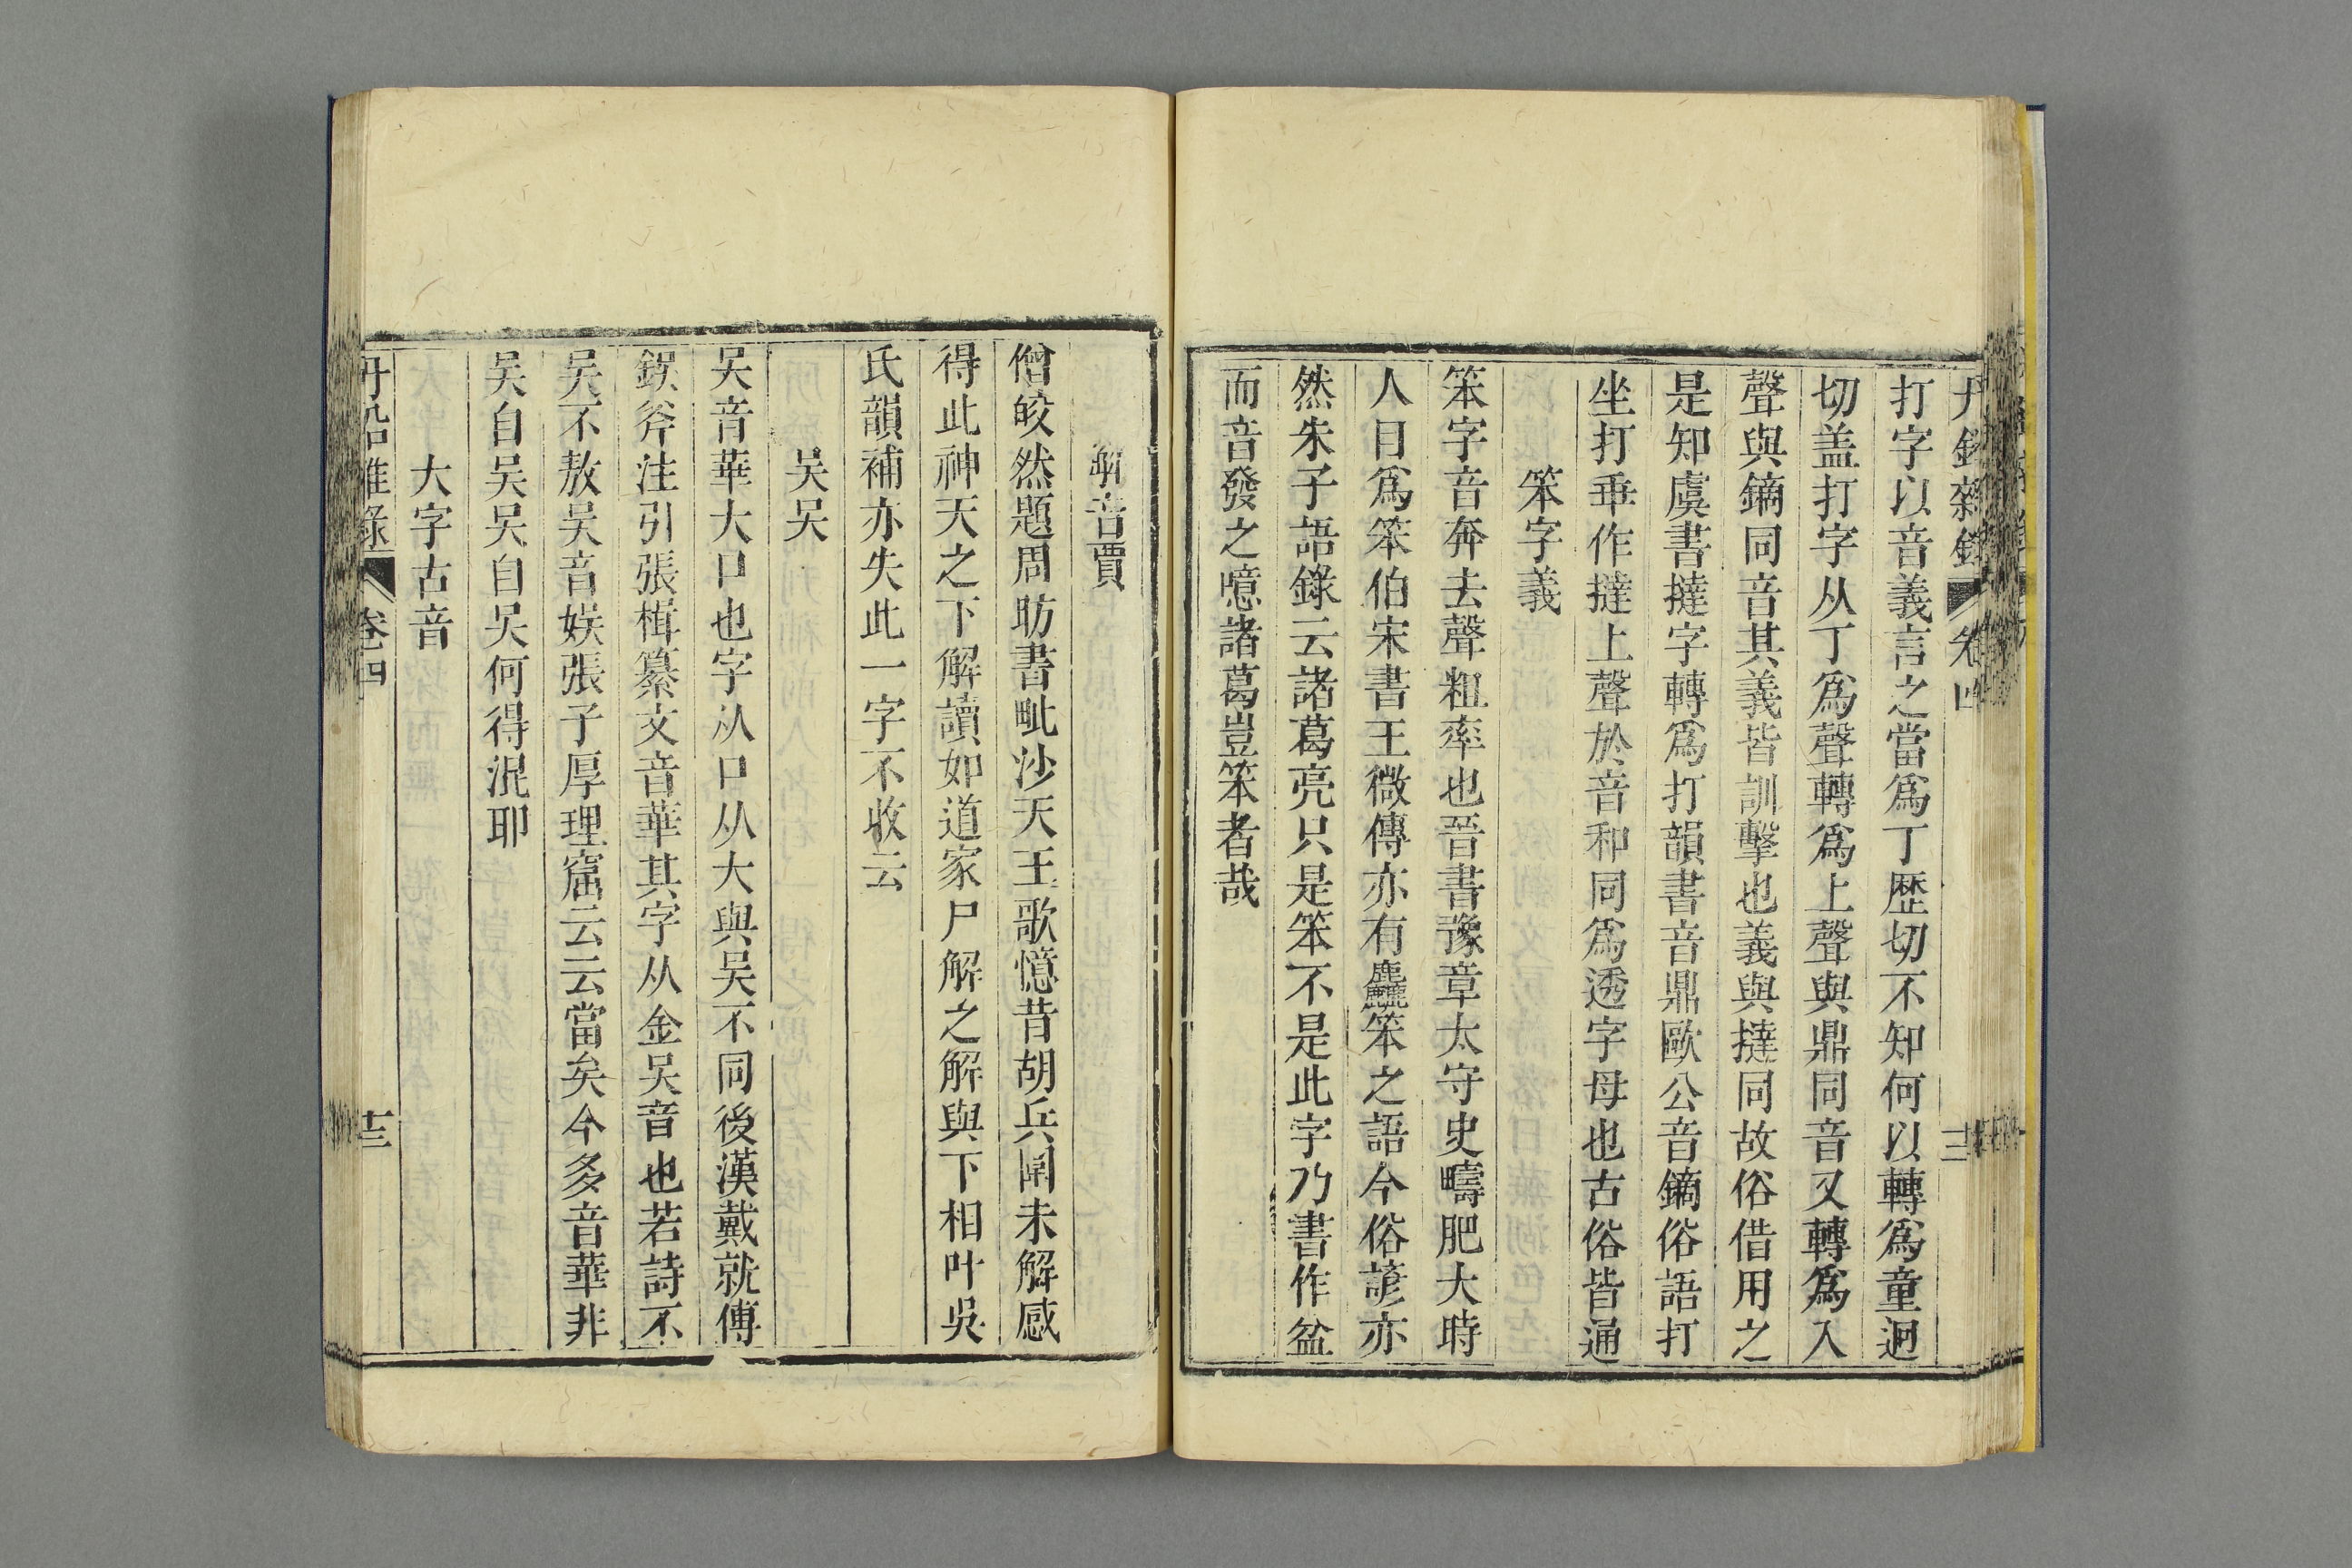 丹鉛雜錄 卷四 十二
打字以音義言之當爲丁歷切不知何以轉爲童迥
切盖打字从丁爲聲轉爲上聲與鼎同音又轉爲入
聲與鏑同音其義皆訓擊也義與撻同故俗借用之
是知虞書撻字轉爲打韻書音鼎歐公音鏑俗語打
坐打乖作撻上聲於音和同爲透字母也古俗皆通
笨字義
笨字音奔去聲粗率也晉書豫章太守史疇肥大時
人目爲笨伯宋書王微傳亦有麤笨之語今俗諺亦
然朱子語錄云諸葛亮只是笨不是此字乃書作盆
而音發之噫諸葛豈笨者哉
解音賈
僧皎然題周昉書毗沙天王歌憶昔胡兵圍未解感
得此神天之下解讀如道家尸解之解與下相叶吳
氏韻補亦失此一字不收云
吴吳
吴音華大口也字从口从大與吳不同後漢戴就傅
鋘斧注引張楫纂文音華其字从金吴音也若詩不
吴不敖吴音娱張子厚理窟云云當矣今多音華非
吴自吴吳自吳何得混耶
大字古音
丹鉛雜錄 卷四 十三